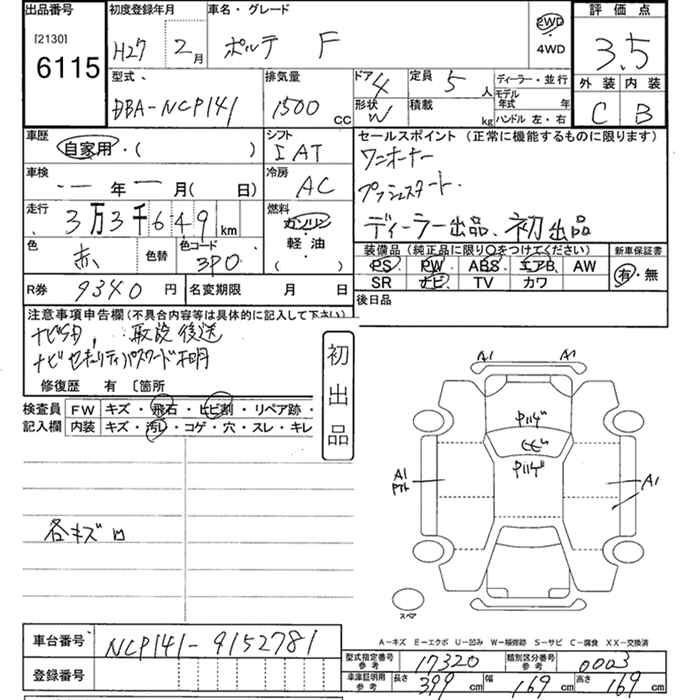 出品番号
[2130]
6115
初度登録年月
H27 2月
車名・グレード
ポルテ F
2WD
4WD
評価点
3.5
外装 内装
C B
型式
DBA-NCP141
排気量
1500 cc
ドア 4
形状 W
定員 5 人
積載 kg
ディーラー・並行
モデル年式 年
ハンドル 左・右
車歴
自家用・( )
シフト
IAT
セールスポイント (正常に機能するものに限ります)
ワンオーナー
プッシュスタート.
ディーラー出品、初出品
車検
年 月( 日)
冷房
AC
走行
3万3千649 km
燃料
ガソリン
軽油
( )
色
赤
色替
色コード
3P0
装備品 (純正品に限り○をつけてください)
PS PW ABS エアB AW
SR ナビ TV カワ
新車保証書
有・無
R券 9340 円
名変期限 月 日
後日品
注意事項申告欄(不具合内容等は具体的に記入して下さい)
ナビSD、取説後送
ナビセキュリティパスワード不明
修復歴 有 〔箇所
初出品
検査員記入欄
FW キズ・飛石・ヒビ割・リペア跡・
内装 キズ・汚レ・コゲ・穴・スレ・キレ
各キズ凹
A1 A1
A1
A1
スペア
A-キズ E-エクボ U-凹み W-補修跡 S-サビ C-腐食 XX-交換済
車台番号 NCP141-9152781
登録番号
型式指定番号 参考 17320
類別区分番号 参考 0003
車庫証明用 参考 長さ 399 cm 幅 169 cm 高さ 169 cm